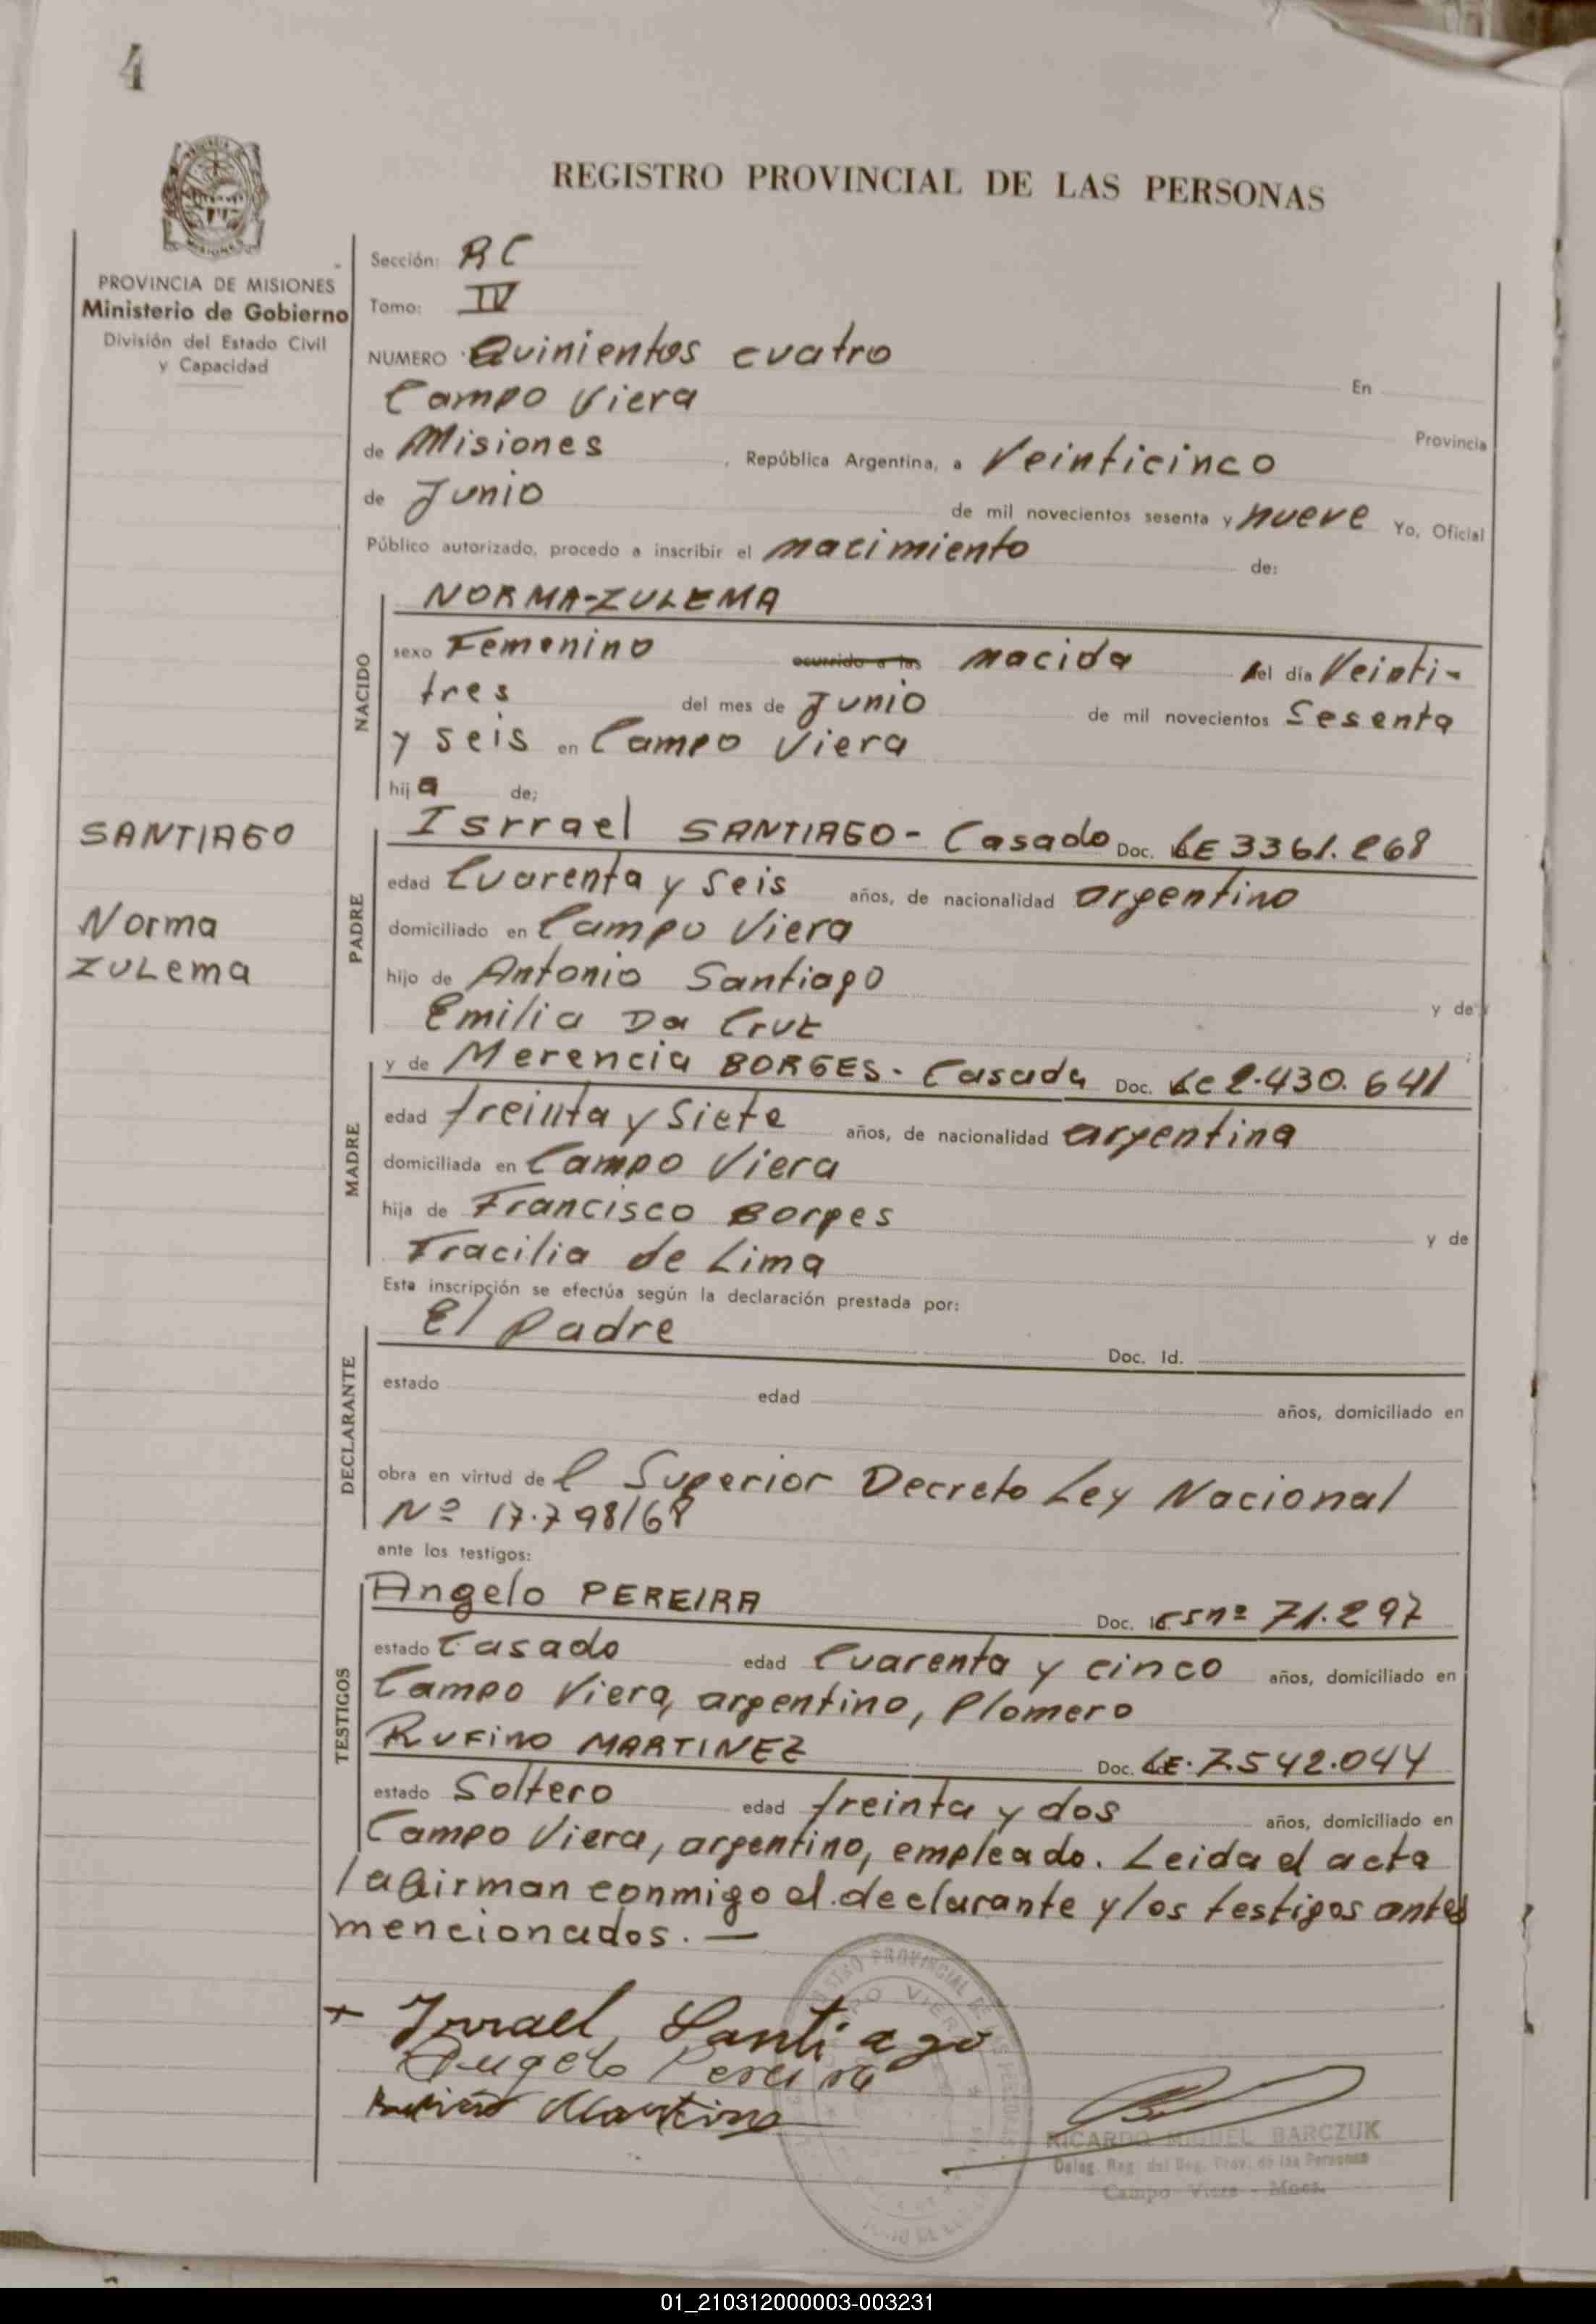 4
REGISTRO PROVINCIAL DE LAS PERSONAS
PROVINCIA DE MISIONES
Ministerio de Gobierno
División del Estado Civil
y Capacidad
Sección: RC
Tomo: IV
NUMERO Quinientos cuatro En
Campo Viera Provincia
de Misiones, República Argentina, a Veinticinco
de Junio de mil novecientos sesenta y nueve Yo, Oficial
Público autorizado, procedo a inscribir el nacimiento de:
NACIDO
NORMA-ZULEMA
sexo Femenino ocurrido a las nacida el día Veinti-
tres del mes de Junio de mil novecientos Sesenta
y seis en Campo Viera
hija de;
SANTIAGO
Norma
ZULema
PADRE
Isrrael SANTIAGO - Casado Doc. LE 3361.268
edad Cuarenta y Seis años, de nacionalidad argentino
domiciliado en Campo Viera
hijo de Antonio Santiago y de
Emilia Da Cruz
MADRE
y de Merencia BORGES - Casada Doc. LC 2.430.641
edad treinta y Siete años, de nacionalidad argentina
domiciliada en Campo Viera
hija de Francisco Borges y de
Tracilia de Lima
Esta inscripción se efectúa según la declaración prestada por:
DECLARANTE
El Padre Doc. Id.
estado edad años, domiciliado en
obra en virtud del Superior Decreto Ley Nacional
Nº 17.798/68
ante los testigos:
TESTIGOS
Angelo PEREIRA Doc. nº 71.297
estado Casado edad Cuarenta y cinco años, domiciliado en
Campo Viera, argentino, Plomero
Rufino MARTINEZ Doc. LE. 7.542.044
estado Soltero edad treinta y dos años, domiciliado en
Campo Viera, argentino, empleado. Leida el acta
la firman conmigo el declarante y los testigos antes
mencionados. —
+ Isrrael, Santiago
Angelo Pereira
Martinez
REGISTRO PROVINCIAL DE LAS PERSONAS
CAMPO VIERA
RICARDO MIGUEL BARCZUK
Deleg. Reg. del Reg. Prov. de las Personas
Campo Viera - Mnes.
01_210312000003-003231